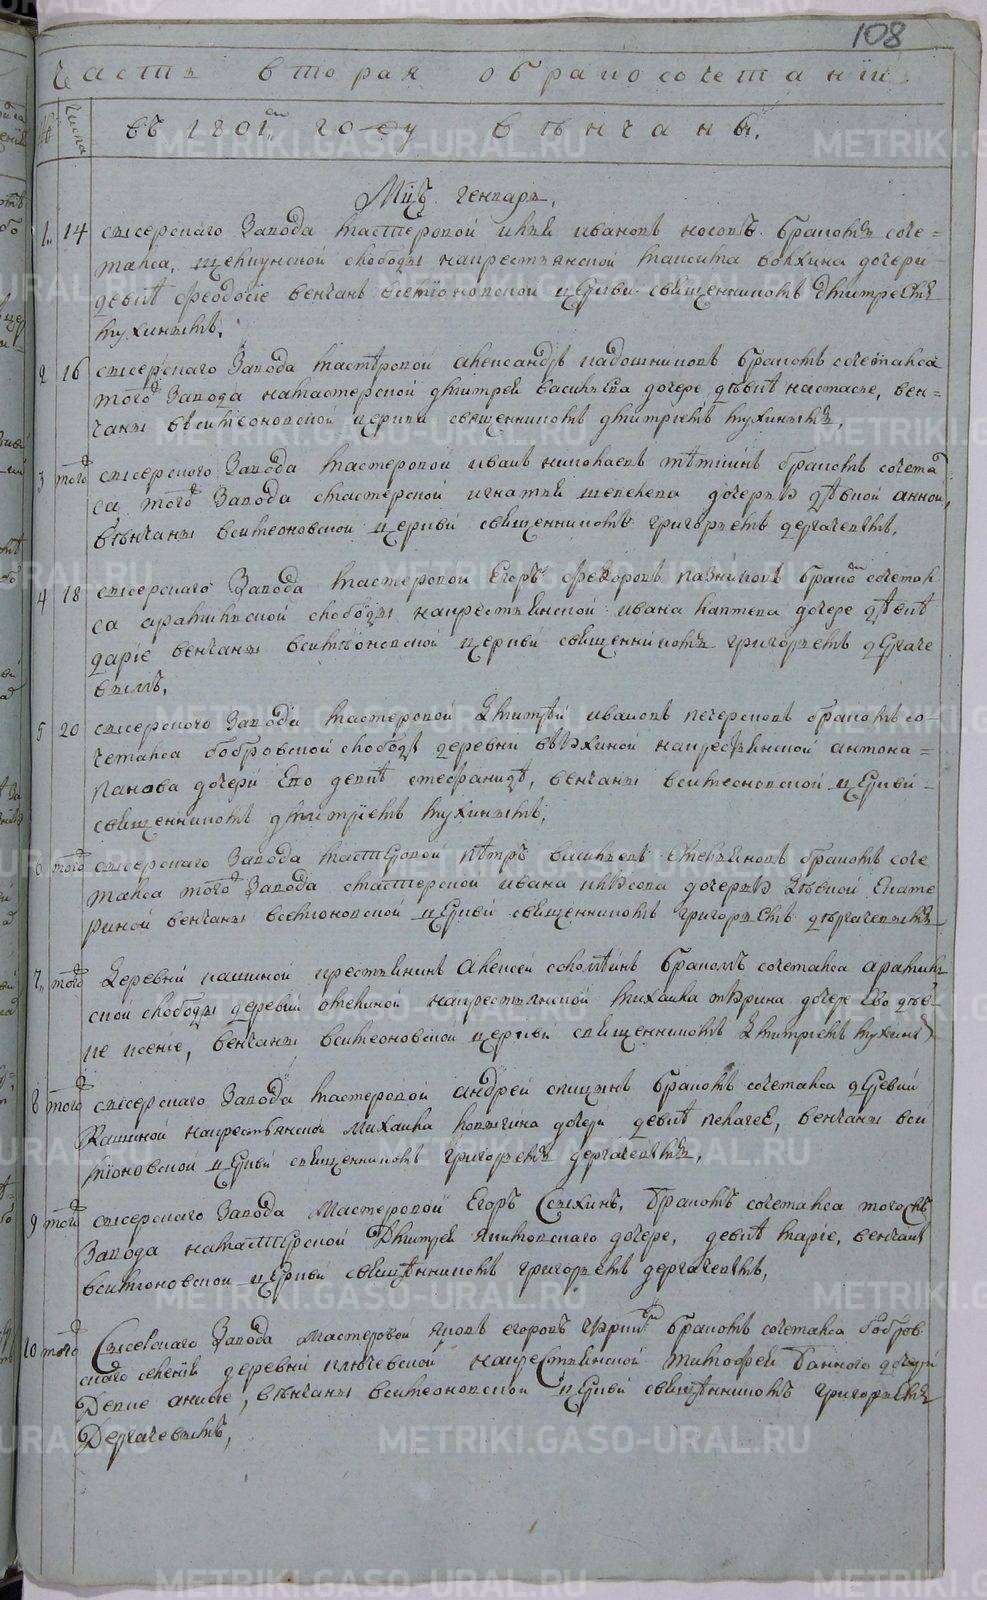 108
Часть вторая обракосочетании
№ Числа въ 1801м году венчаны.
Мцъ генварь,
1 14 сысерскаго завода мастеровой илья ивановъ носовъ бракомъ соче=
тался, щелкунской слободы накрестьянской максима волхина дочери
девке феодосіе венчаны всимеоновской церкви священникомъ дмитреемъ
мухинымъ,
2 16 сысерскаго завода мастеровой александръ ладошниковъ бракомъ сочетался
того завода намастерской дмитрея васильева дочере девке настасье, вен=
чаны всимеоновской церкви священникомъ дмитриемъ мухинымъ,
3 того сысерского завода мастеровой иванъ николаевъ бракомъ сочетал
ся того завода смастерской игнатия шепелева дочерью девкой анной,
венчаны всимеоновской церкви священникомъ григорьемъ дергачевымъ,
4 18 сысерскаго завода мастеровой Егоръ федоровъ бракомъ сочетал
ся арамильской слободы накрестьянской ивана лаптева дочере девке
дарье венчаны всимеоновской церкви священникомъ григорьемъ дергаче
вымъ,
5 20 сысерскаго завода мастеровой Дмитрей ивановъ печерсковъ бракомъ со-
четался бобровской слободы деревни накрестьянской антона
панова дочери Ево девке стефаниде, венчаны всимеоновской церкви
священникомъ дмитриемъ мухинымъ,
6 того сысерскаго завода мастеровой петръ васильевъ бракомъ соче
тался того завода смастерской ивана дочерью Девкой Екате
риной венчаны всимеоновской церкви священникомъ григорьемъ дергачевымъ
7 того Деревни кашиной крестьянинъ Алексей бракомъ сочетался арамиль
ской слободы деревни накрестьянской михаила дочере Ево дев
ке ксенье, венчаны всимеоновской церкви священникомъ Дмитриемъ мухинымъ
8 того сысерскаго завода мастеровой андрей спицынъ бракомъ сочетался деревни
Кашиной накрестьянской Михаила дочери девке пелагее, венчаны вси
меоновской церкви священникомъ григорьемъ дергачевымъ,
9 того сысерскаго завода мастеровой Егоръ бракомъ сочетался тогожъ
завода намастерской Дмитрея дочере, девке марье, венчаны
всимеоновской церкви священникомъ григорьемъ дергачевымъ,
10 того Сысерскаго завода мастеровой яковъ егоровъ бракомъ сочетался бобров
скаго селения деревни ключевской накрестьянской тимофея дочери
Девке анисье, венчаны всимеоновской церкви священникомъ григорьемъ
Дергачевымъ,
METRIKI.GASO-URAL.RU